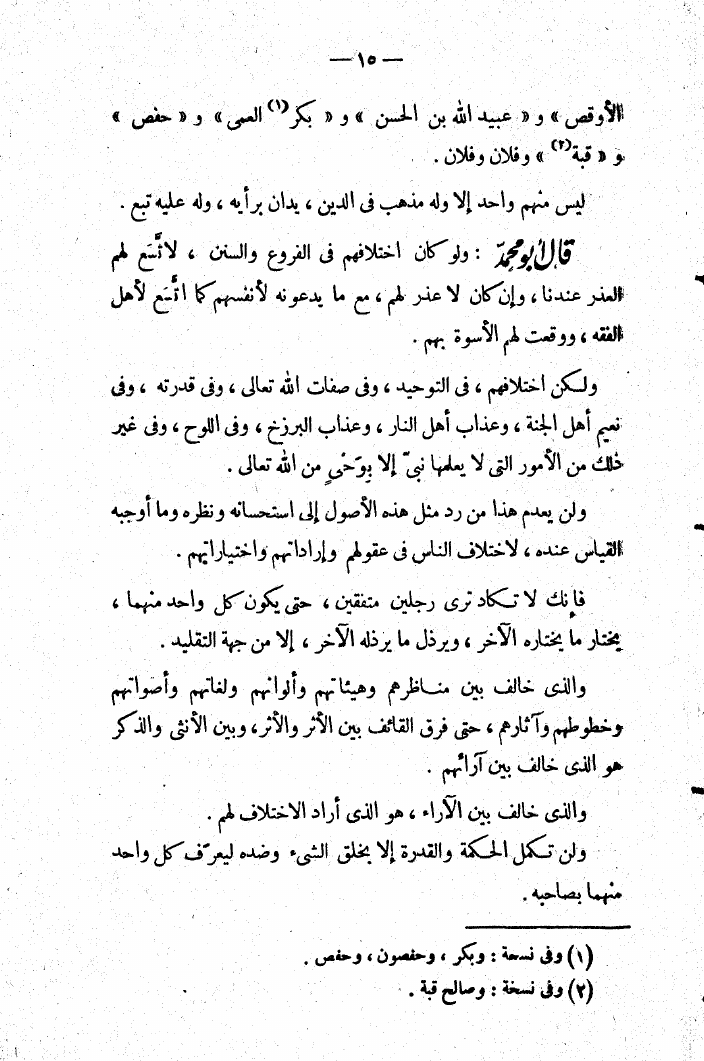 — ١٥ —
الأوقص » و « عبيد الله بن الحسن » و « بكر (١) العمى » و « حفص »
و « قبة (٢) » وفلان وفلان .
ليس منهم واحد إلا وله مذهب فى الدين ، يدان برأيه ، وله عليه تبع .
قال أبو محمد : ولو كان اختلافهم فى الفروع والسنن ، لاتَّسَع لهم
العذر عندنا ، وإن كان لا عذر لهم ، مع ما يدعونه لأنفسهم كما اتَّسَع لأهل
الفقه ، ووقعت لهم الأسوة بهم .
ولكن اختلافهم ، فى التوحيد ، وفى صفات الله تعالى ، وفى قدرته ، وفى
نعيم أهل الجنة ، وعذاب أهل النار ، وعذاب البرزخ ، وفى اللوح ، وفى غير
ذلك من الأمور التى لا يعلمها نبىّ إلا بِوَحْىٍ من الله تعالى .
ولن يعدم هذا من رد مثل هذه الأصول إلى استحسانه ونظره وما أوجبه
القياس عنده ، لاختلاف الناس فى عقولهم وإراداتهم واختياراتهم .
فإنك لا تكاد ترى رجلين متفقين ، حتى يكون كل واحد منهما ،
يختار ما يختاره الآخر ، ويرذل ما يرذله الآخر ، إلا من جهة التقليد .
والذى خالف بين مناظرهم وهيئاتهم وألوانهم ولغاتهم وأصواتهم
وخطوطهم وآثارهم ، حتى فرق القائف بين الأثر والأثر ، وبين الأنثى والذكر
هو الذى خالف بين آرائهم .
والذى خالف بين الآراء ، هو الذى أراد الاختلاف لهم .
ولن تكمل الحكمة والقدرة إلا بخلق الشىء وضده ليعرّف كل واحد
منهما بصاحبه .
(١) وفى نسحة : وبكر ، وحفصون ، وحفص .
(٢) وفى نسخة : وصالح قبة .